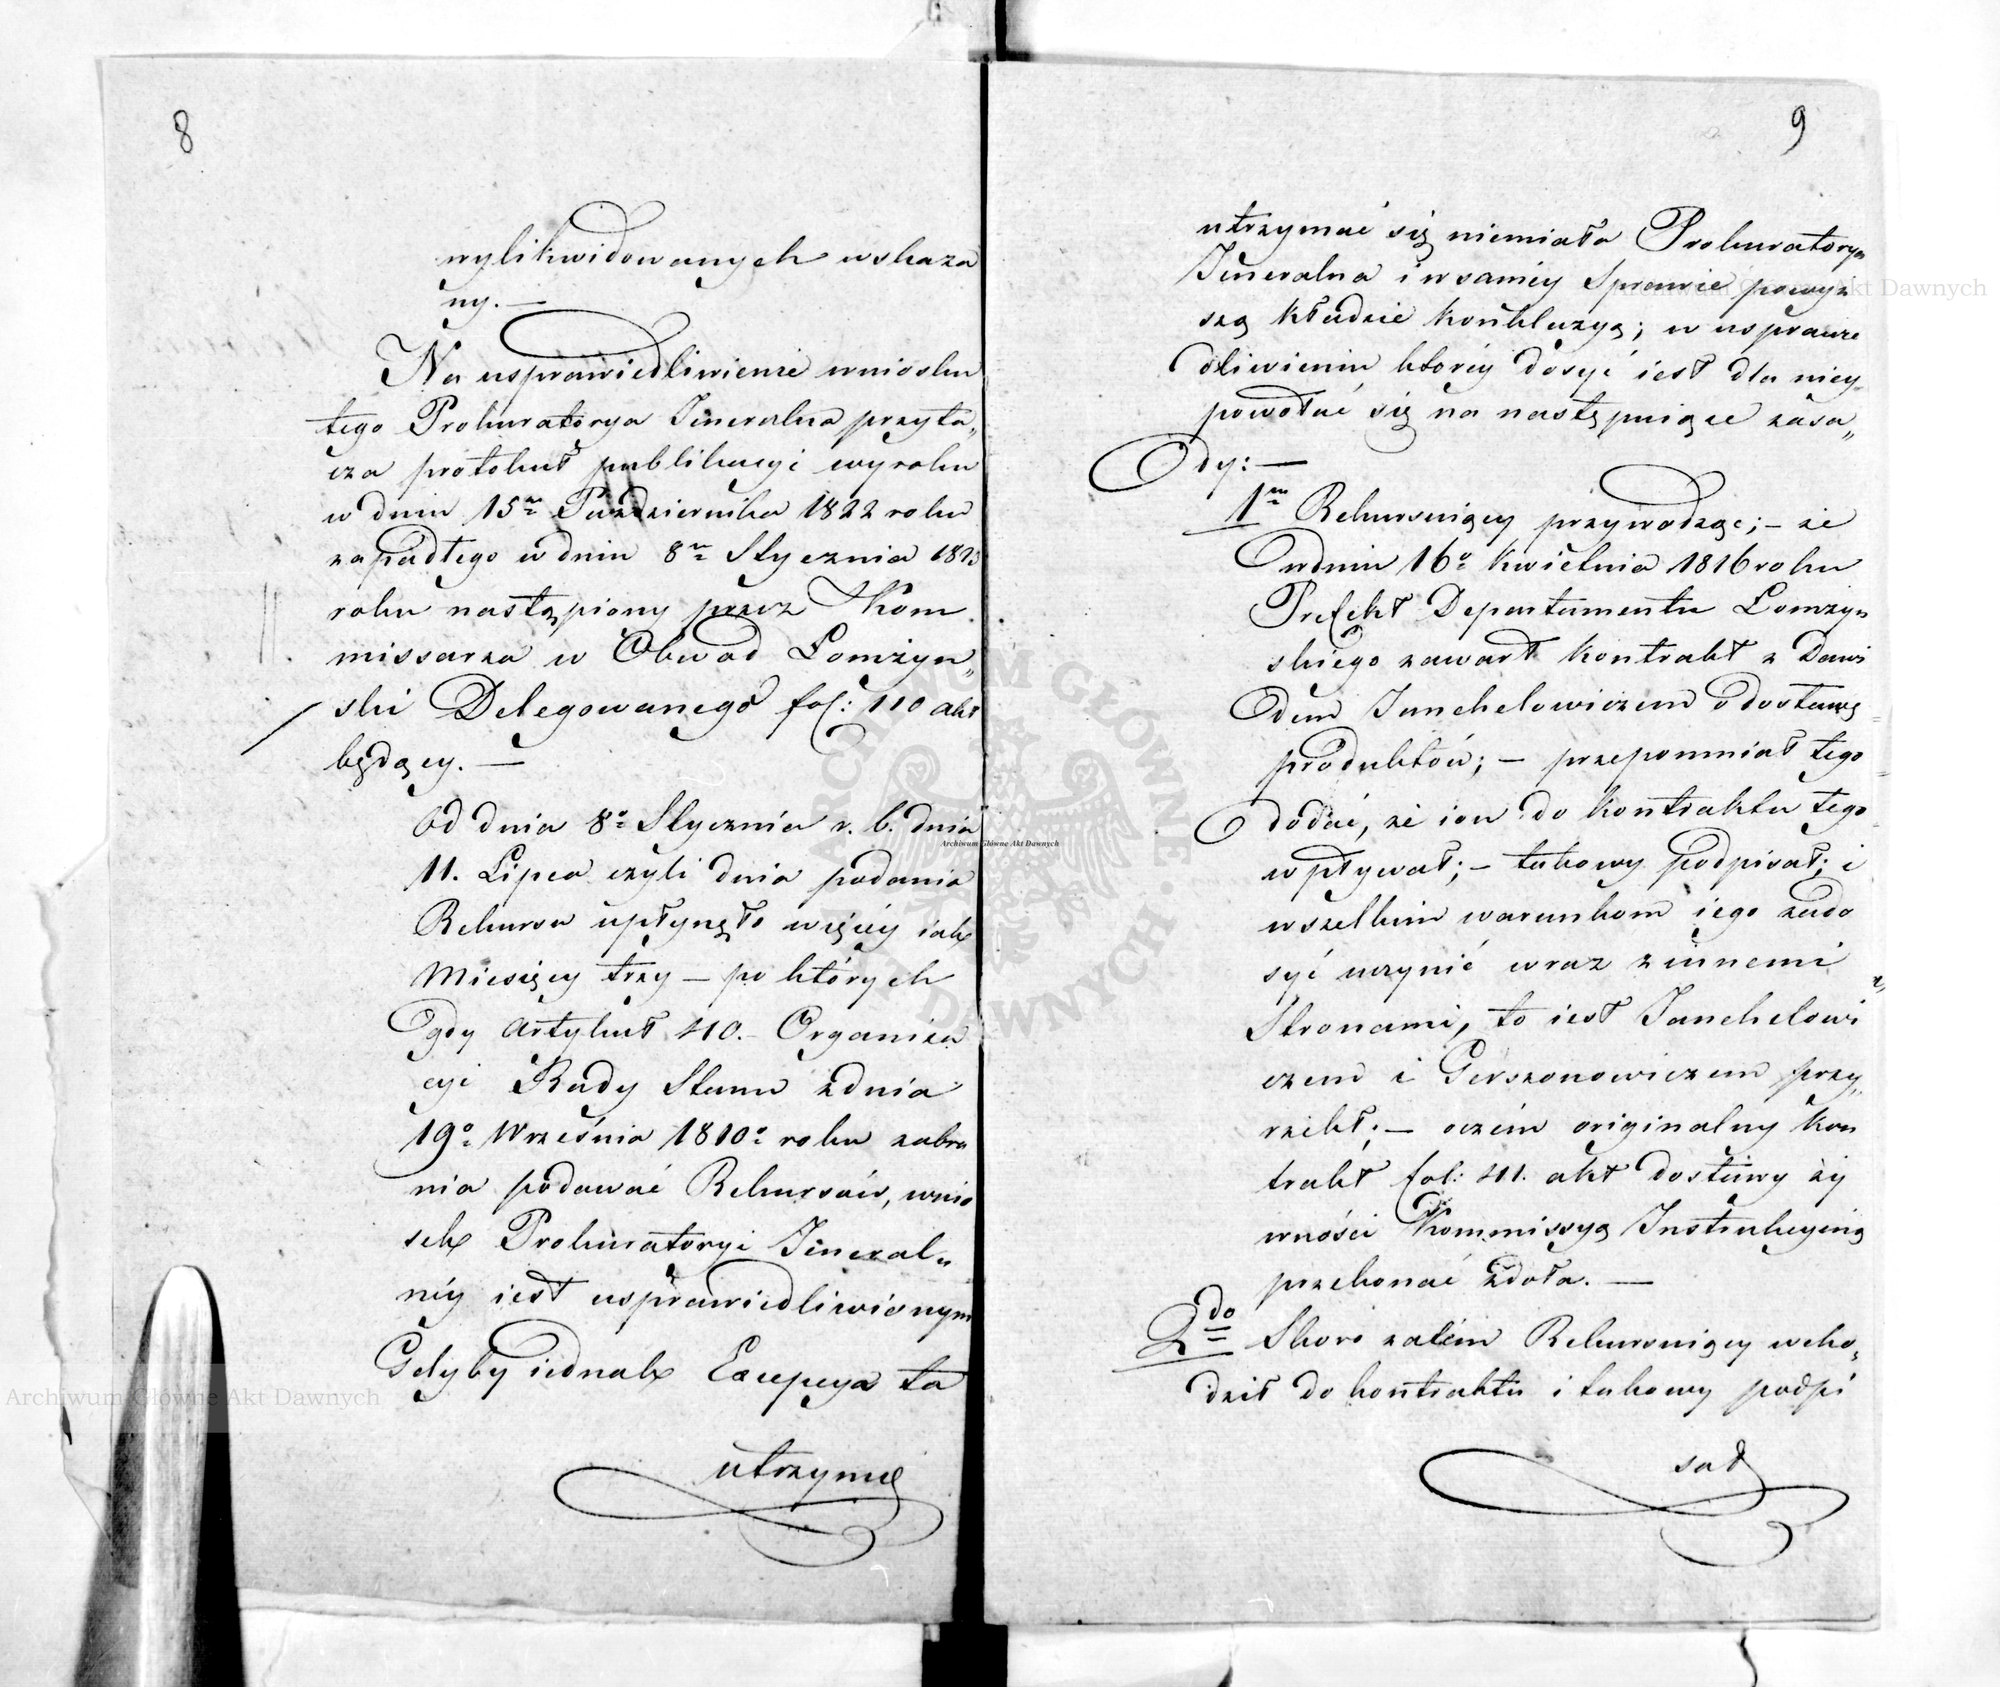 8
wylikwidowanych wskaza
ny. —
Na usprawiedliwienie wniosku
tego Prokuratorya Jeneralna przyta„
cza protokuł publikacyi wyroku
w dniu 15m Października 1822 roku
zapadłego w dniu 8m Stycznia 1823
roku nastąpiony przez Kom
missarza w Obwod Łomżyn„
ski Delegowanego fol: 110 akt
będący. —
Od dnia 8o Stycznia r. b. dnia
11. Lipca czyli dnia podania
Rekursu upłynęło więcéy iak
Miesięcy trzy — po których
gdy Artykuł 40. Organiza
cyi Rady Stanu z dnia
19o Września 1810o roku zabra
nia podawać Rekursów, wnio
sek Prokuratoryi Jeneral„
néy iest usprawiedliwionym
Gdyby iednak Excepcya ta
utrzymać
9
utrzymać się niemiała Prokuratorya
Jeneralna i w saméy Sprawie powyż
szą kładzie konkluzyą; w usprawie
dliwieniu któréy dosyć iest dla niey
powołać się na następuiące zasa„
dy: —
1m Rekursuiący przywodząc; — że
w dniu 16o Kwietnia 1816 roku
Prefekt Departamentu Łomżyn
skiego zawarł kontrakt z Dawi
dem Janchelowiczem o dostawę
produktów; — przepomniał tego
dodać, że i on do kontraktu tego
wpływał; — takowy podpisał; i
wszelkim warunkom iego zado
syć uczynić wraz z innemi
Stronami, to iest Janchelowi
czem i Gerszonowiczem przy„
rzekł; — oczém originalny Kon
trakt fol: 41. akt dostawy ży
wności Kommissyą Instrukcyiną
przekonać zdoła. —
2do Skoro zatém Rekursuiący wcho„
dził do kontraktu i takowy podpi
sał
Archiwum Główne Akt Dawnych
Archiwum Główne Akt Dawnych
Archiwum Główne Akt Dawnych
ARCHIWUM GŁÓWNE AKT DAWNYCH